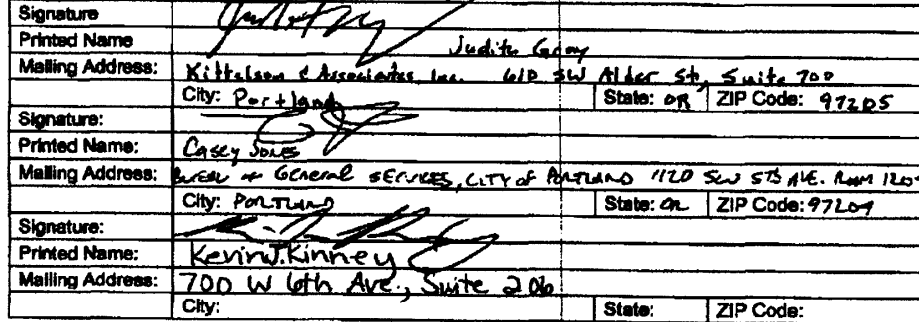 Signature
Printed Name Judith Gray
Mailing Address: Kittelson & Associates, Inc. 610 SW Alder St, Suite 700
City: Portland State: OR ZIP Code: 97205
Signature:
Printed Name: Casey Jones
Mailing Address: Bureau of General Services, City of Portland 1120 SW 5th Ave. Room 1204
City: Portland State: OR ZIP Code: 97204
Signature:
Printed Name: Kevin J. Kinney
Mailing Address: 700 W 6th Ave., Suite 206
City: State: ZIP Code: